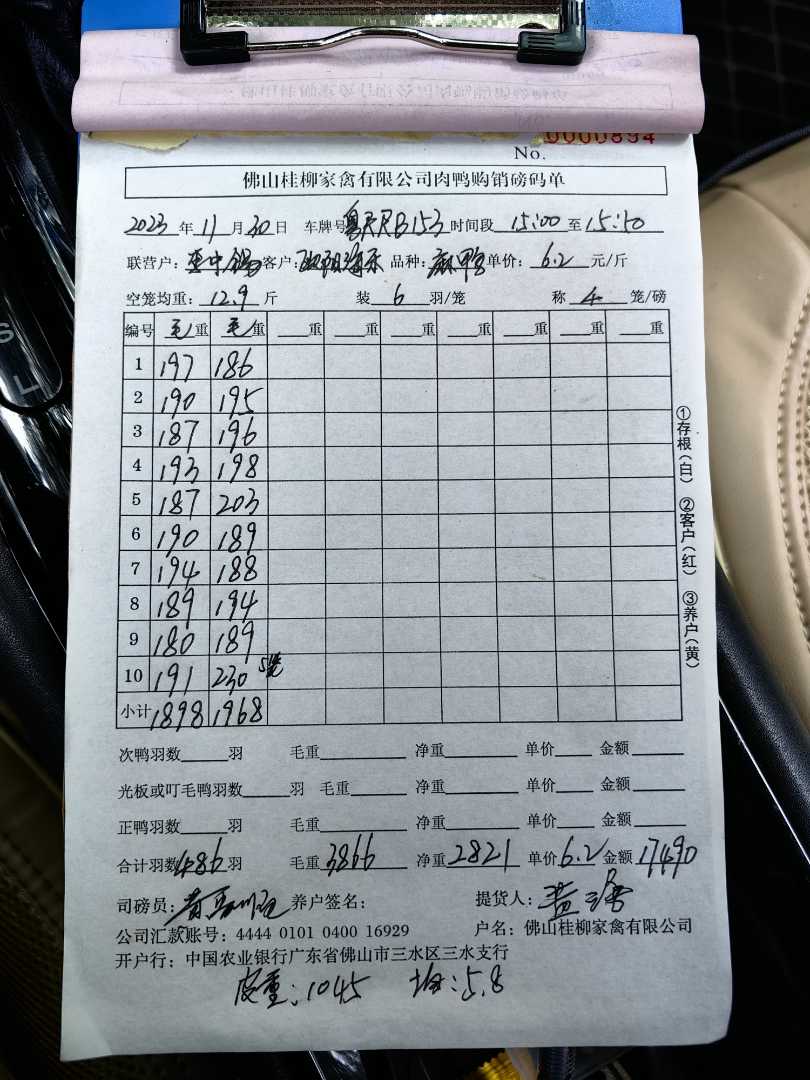 No. 0000894
佛山桂柳家禽有限公司肉鸭购销磅码单
2023 年 11 月 30 日 车牌号 B153 时间段 15:00 至 15:50
联营户: 客户: 品种: 麻鸭 单价: 6.2 元/斤
空笼均重: 12.9 斤 装 6 羽/笼 称 4 笼/磅
编号 毛重 毛重 重 重 重 重 重 重 重
1 197 186
2 190 195
3 187 196
4 193 198
5 187 203
6 190 189
7 194 188
8 189 194
9 180 189
10 191 230 5笼
小计 1898 1968
①存根(白) ②客户(红) ③养户(黄)
次鸭羽数 羽 毛重 净重 单价 金额
光板或叮毛鸭羽数 羽 毛重 净重 单价 金额
正鸭羽数 羽 毛重 净重 单价 金额
合计羽数 486 羽 毛重 3866 净重 2821 单价 6.2 金额 17490
司磅员: 养户签名: 提货人:
公司汇款账号: 4444 0101 0400 16929 户名: 佛山桂柳家禽有限公司
开户行: 中国农业银行广东省佛山市三水区三水支行
皮重: 1045 均: 5.8